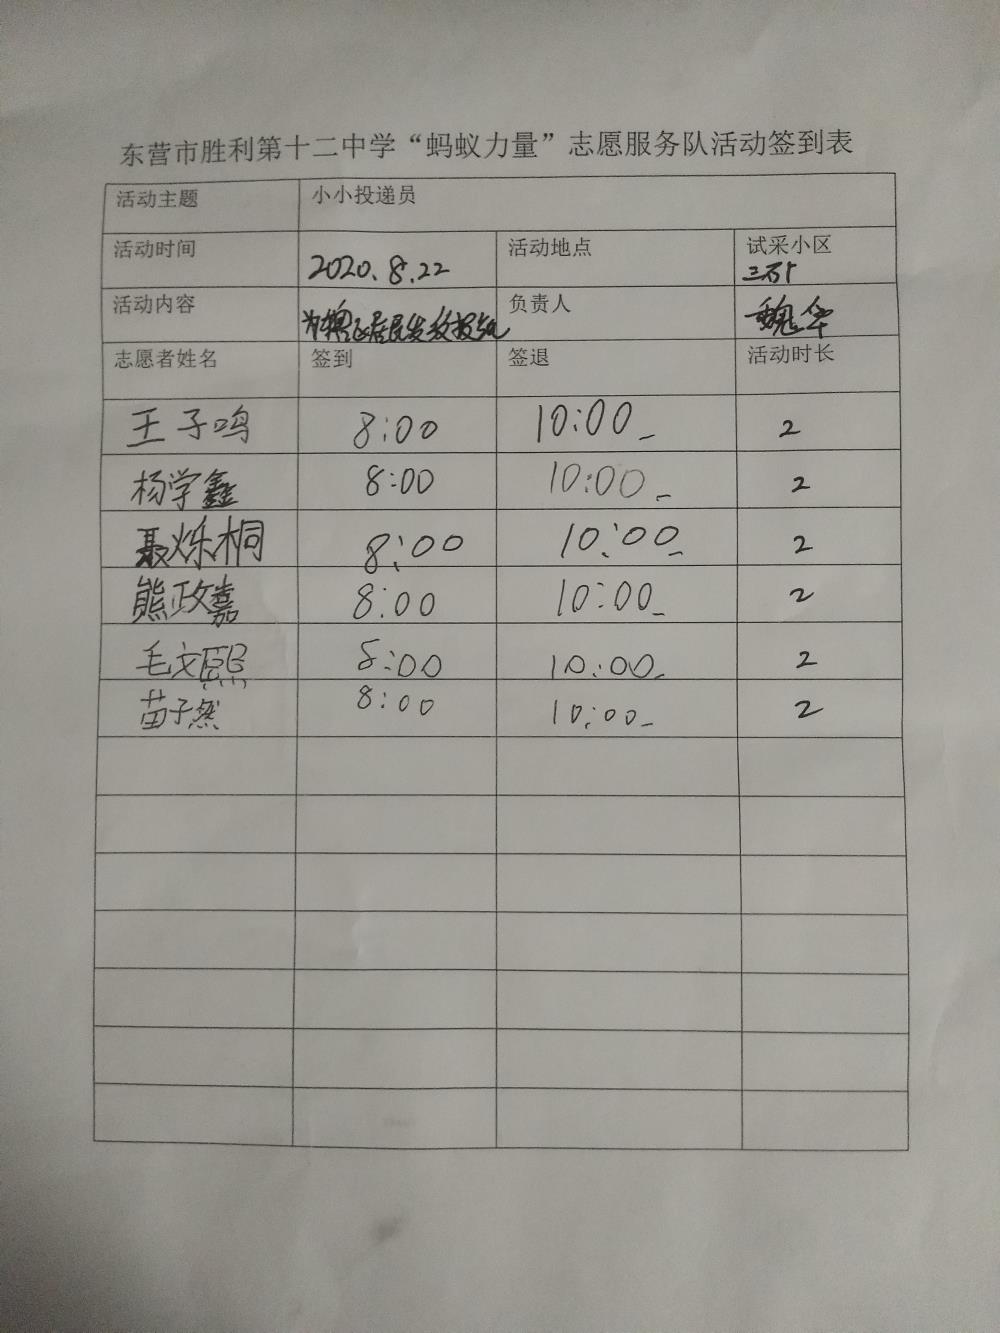 东营市胜利第十二中学“蚂蚁力量”志愿服务队活动签到表
活动主题 小小投递员
活动时间 2020.8.22 活动地点 试采小区
活动内容 居民发放报纸 负责人 魏华
志愿者姓名 签到 签退 活动时长
王子鸣 8:00 10:00 2
杨学鑫 8:00 10:00 2
聂烁桐 8:00 10:00 2
熊政嘉 8:00 10:00 2
毛文熙 8:00 10:00 2
苗子然 8:00 10:00 2